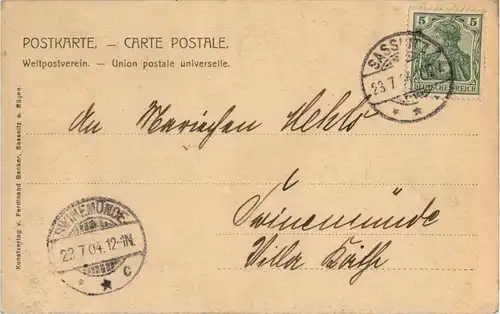 POSTKARTE. — CARTE POSTALE.
Weltpostverein. — Union postale universelle.
5 5
DEUTSCHES REICH
SASSNITZ
23.7.04
An Mariechen
Swinemünde
Villa Käthe
SWINEMÜNDE
23.7.04.12-1N.
* * C
Kunstverlag v. Ferdinand Becker, Sassnitz a. Rügen.